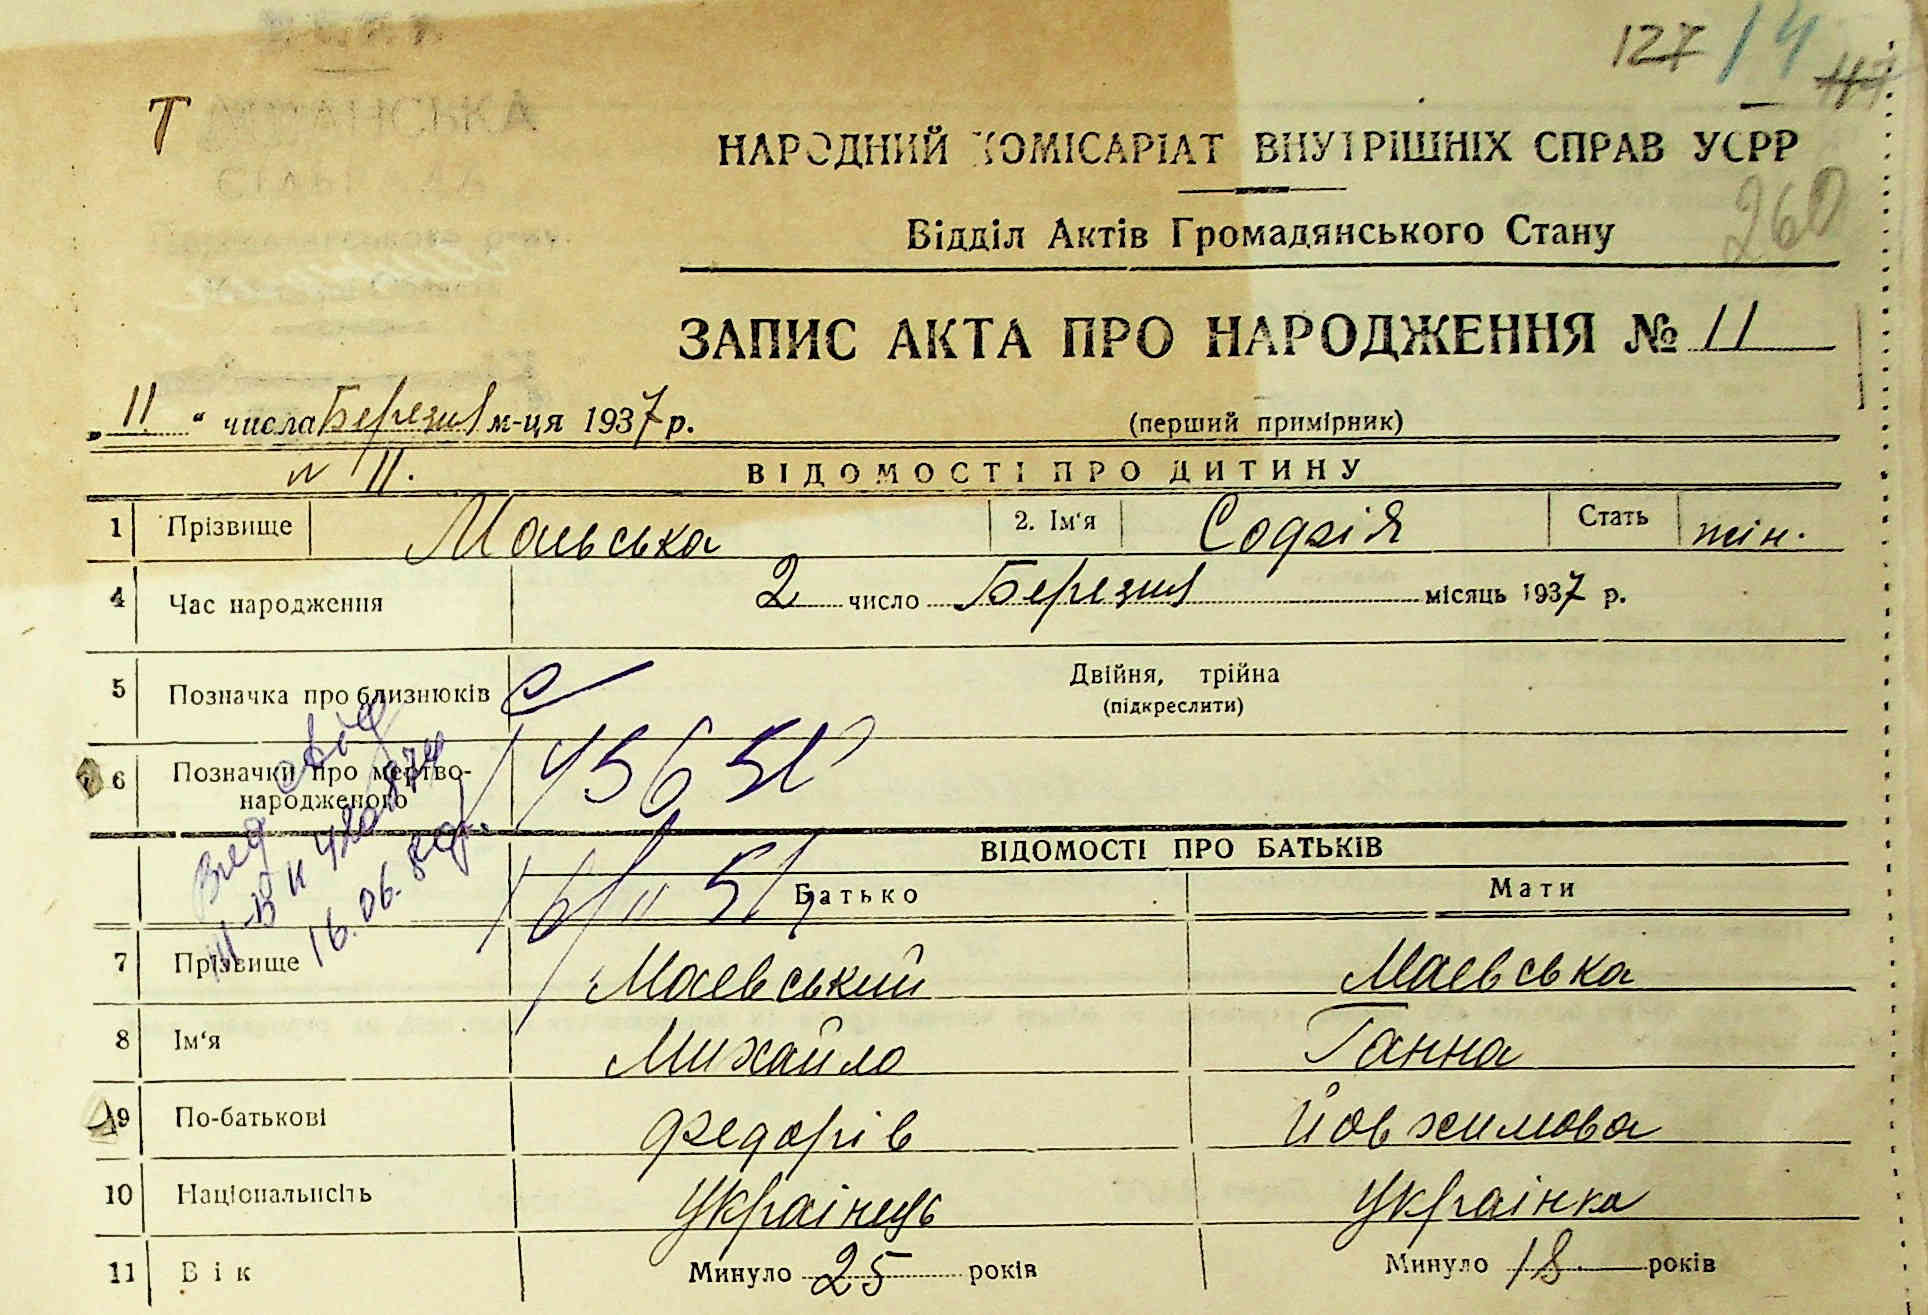 127 14
Т
НАРОДНИЙ КОМІСАРІАТ ВНУТРІШНІХ СПРАВ УСРР
260
Відділ Актів Громадянського Стану
ЗАПИС АКТА ПРО НАРОДЖЕННЯ № 11
„11.“ числа Березня м-ця 1937 р. (перший примірник)
№ 11. ВІДОМОСТІ ПРО ДИТИНУ
1 Прізвище Маєвська 2. Ім'я Софія Стать жін.
4 Час народження 2 число Березня місяць 1937 р.
5 Позначка про близнюків Двійня, трійна
(підкреслити)
6 Позначки про мертво-
народженого
ВІДОМОСТІ ПРО БАТЬКІВ
Батько Мати
16.06.
7 Прізвище Маєвський Маєвська
8 Ім'я Михайло Ганна
9 По-батькові Федорів Йовхимова
10 Національнсіть Українець Українка
11 Вік Минуло 25 років Минуло 18 років